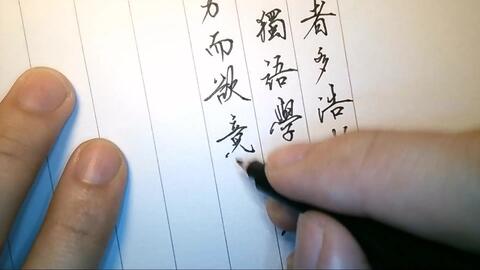 者多浩
獨語學
而欲竟